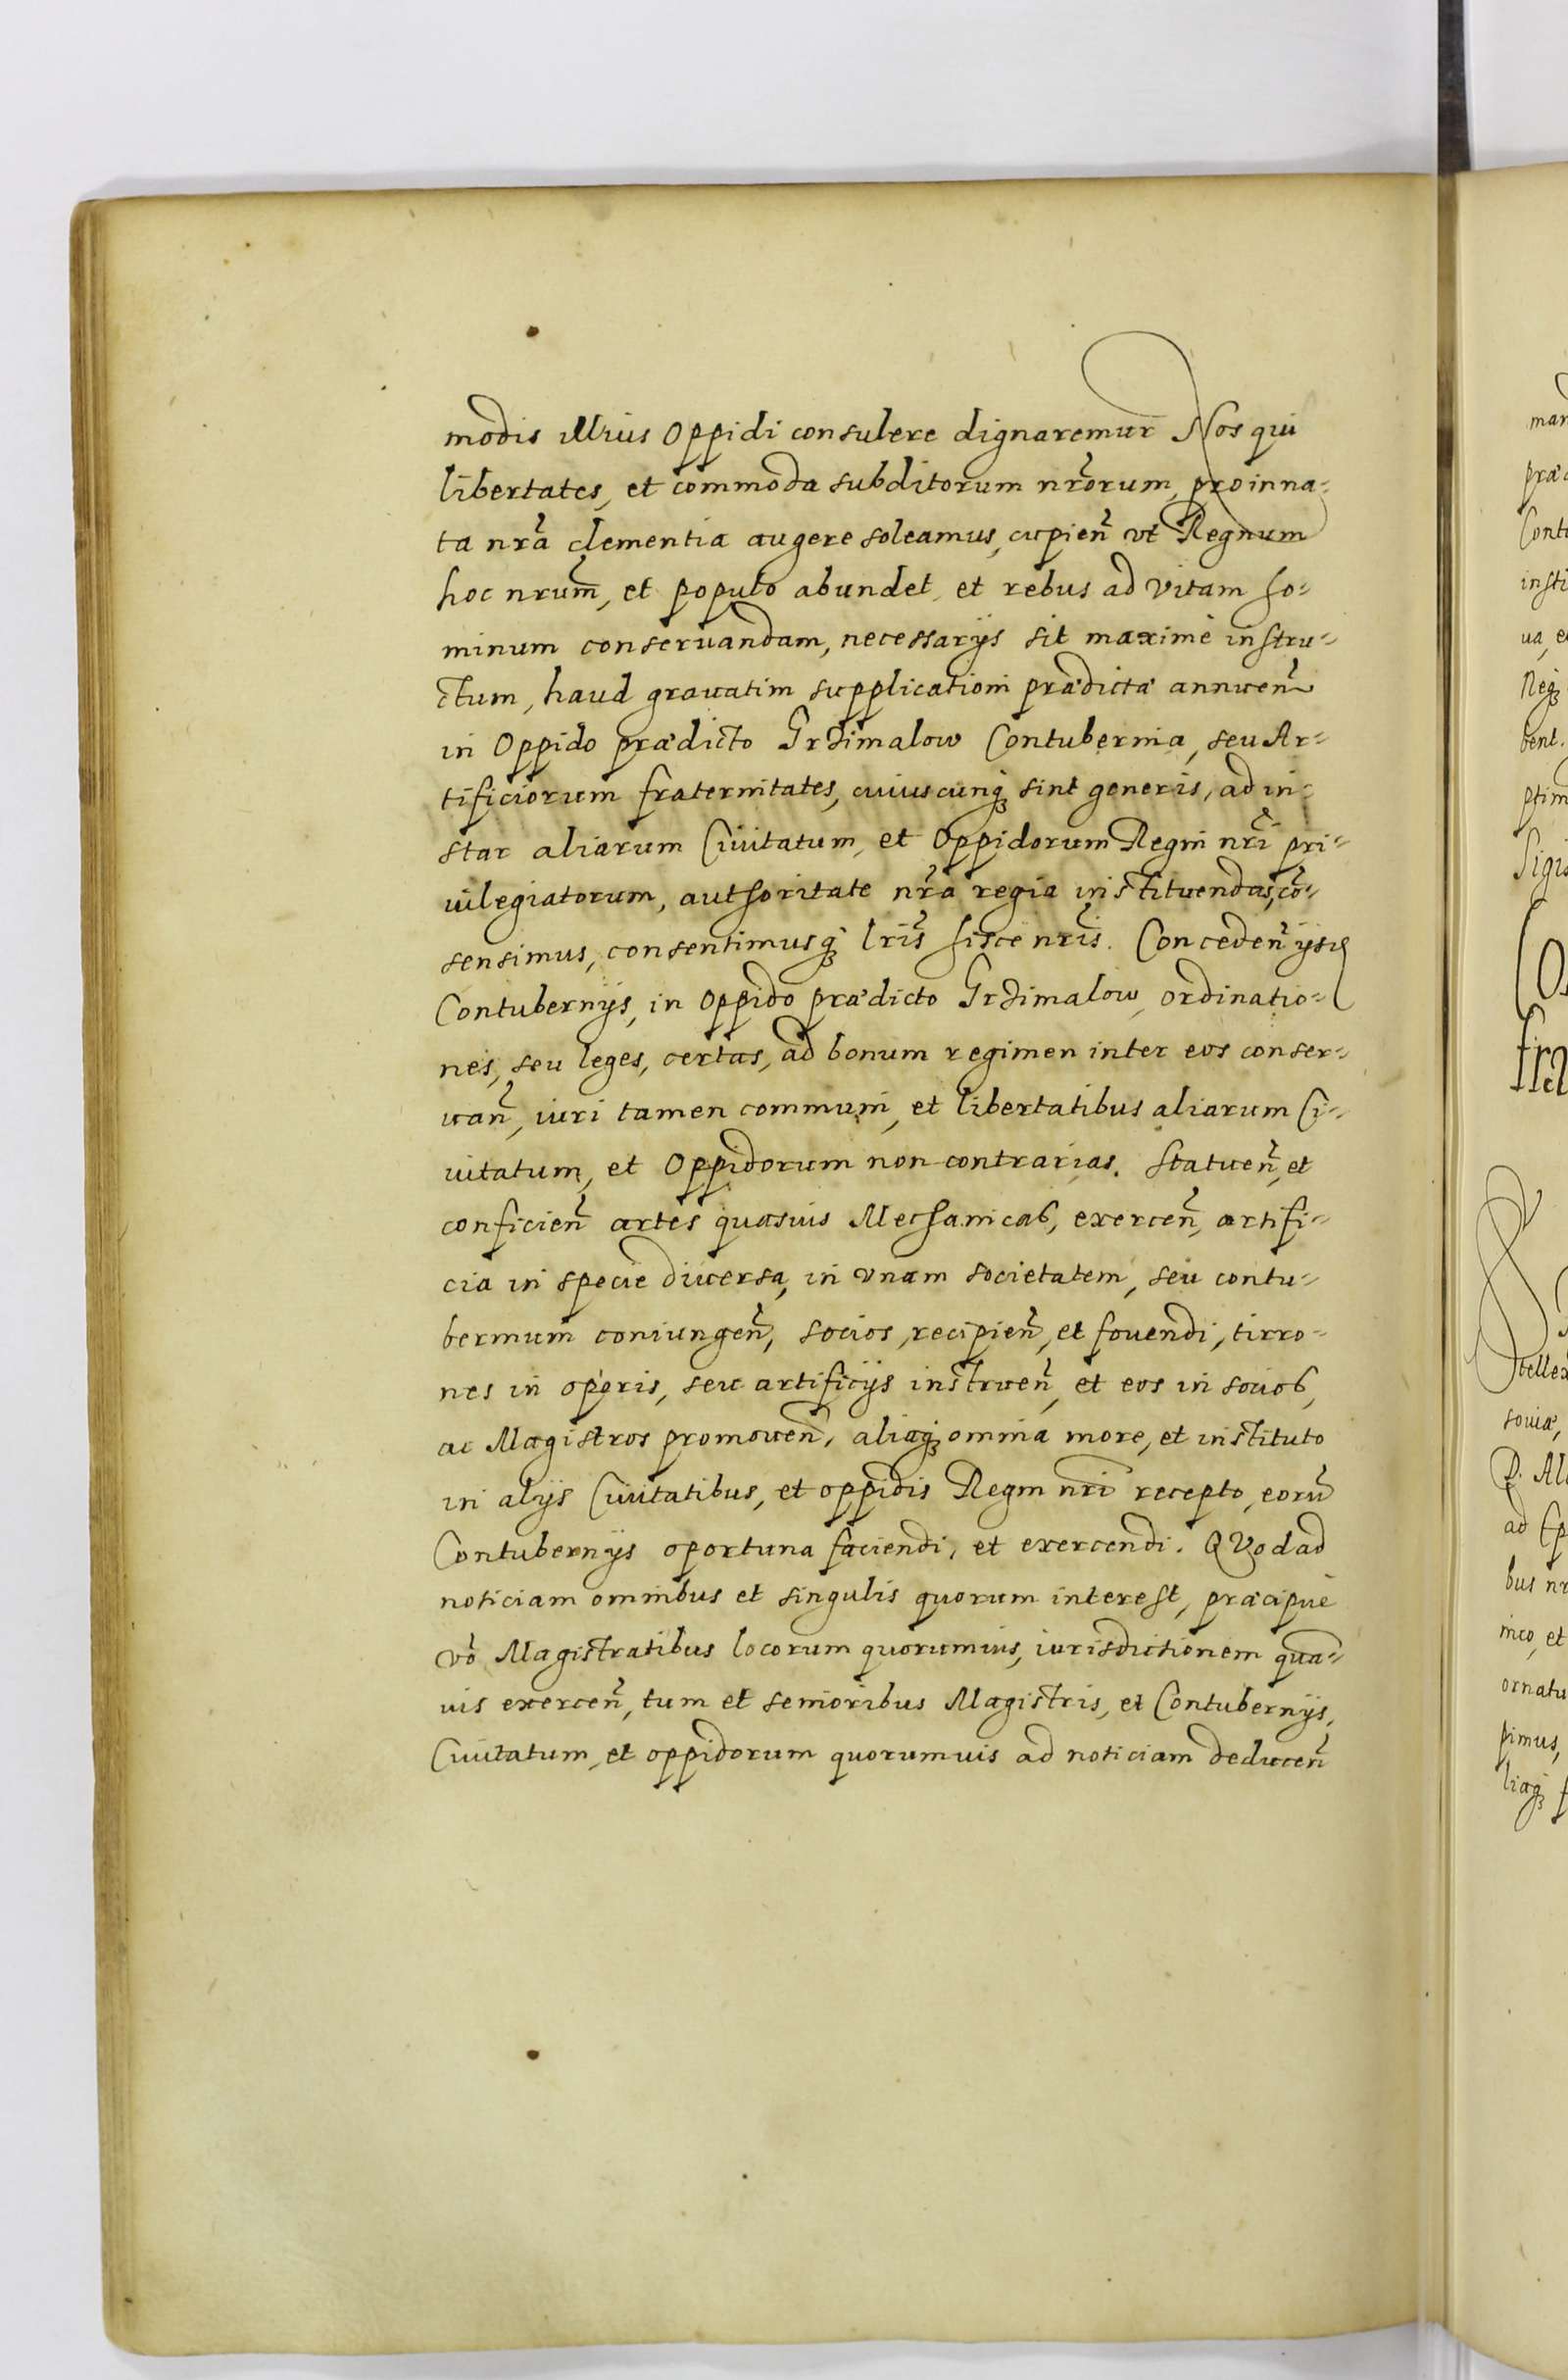 modis illius Oppidi consulere dignaremur Nos qui
libertates, et commoda subditorum nr̃orum, pro inna-
ta nr̃a clementia augere soleamus, cupien̄ vt Regnum
hoc nrum̃, et populo abundet, et rebus ad vitam ho-
minum conseruandam, necessarijs sit maximè instru-
ctum, haud grauatim supplicationi prædictæ annuen̄
in Oppido prædicto Grzimalow Contubernia, seu Ar-
tificiorum fraternitates, cuiuscunq; sint generis, ad in-
star aliarum Ciuitatum, et Oppidorum Regni nr̃i pri-
uilegiatorum, authoritate nr̃a regia instituendas, cō-
sensimus, consentimusq; lr̃is hisce nr̃is. Conceden̄ ijsd
Contubernijs, in Oppido prædicto Grzimalow, ordinatio-
nes, seu leges, certas, ad bonum regimen inter eos conser-
uan̄, iuri tamen communi, et libertatibus aliarum Ci-
uitatum, et Oppidorum non contrarias. Statuen̄, et
conficien̄ artes quasuis Mechanicas, exercen̄, artifi-
cia in specie diuersa, in vnam societatem, seu contu-
bernium coniungen̄, socios, recipien̄, et fouendi, tirro-
nes in operis, seu artificijs instruen̄, et eos in socios,
ac Magistros promouen̄, aliaq; omnia more, et instituto
in alijs Ciuitatibus, et oppidis Regni nr̃i recepto, eorū
Contubernijs oportuna faciendi, et exercendi. QVod ad
noticiam omnibus et singulis quorum interest, præcipuè
vo Magistratibus locorum quorumuis, iurisdictionem qua-
uis exercen̄, tum et senioribus Magistris, et Contubernijs,
Ciuitatum, et oppidorum quorumuis ad noticiam deducen̄